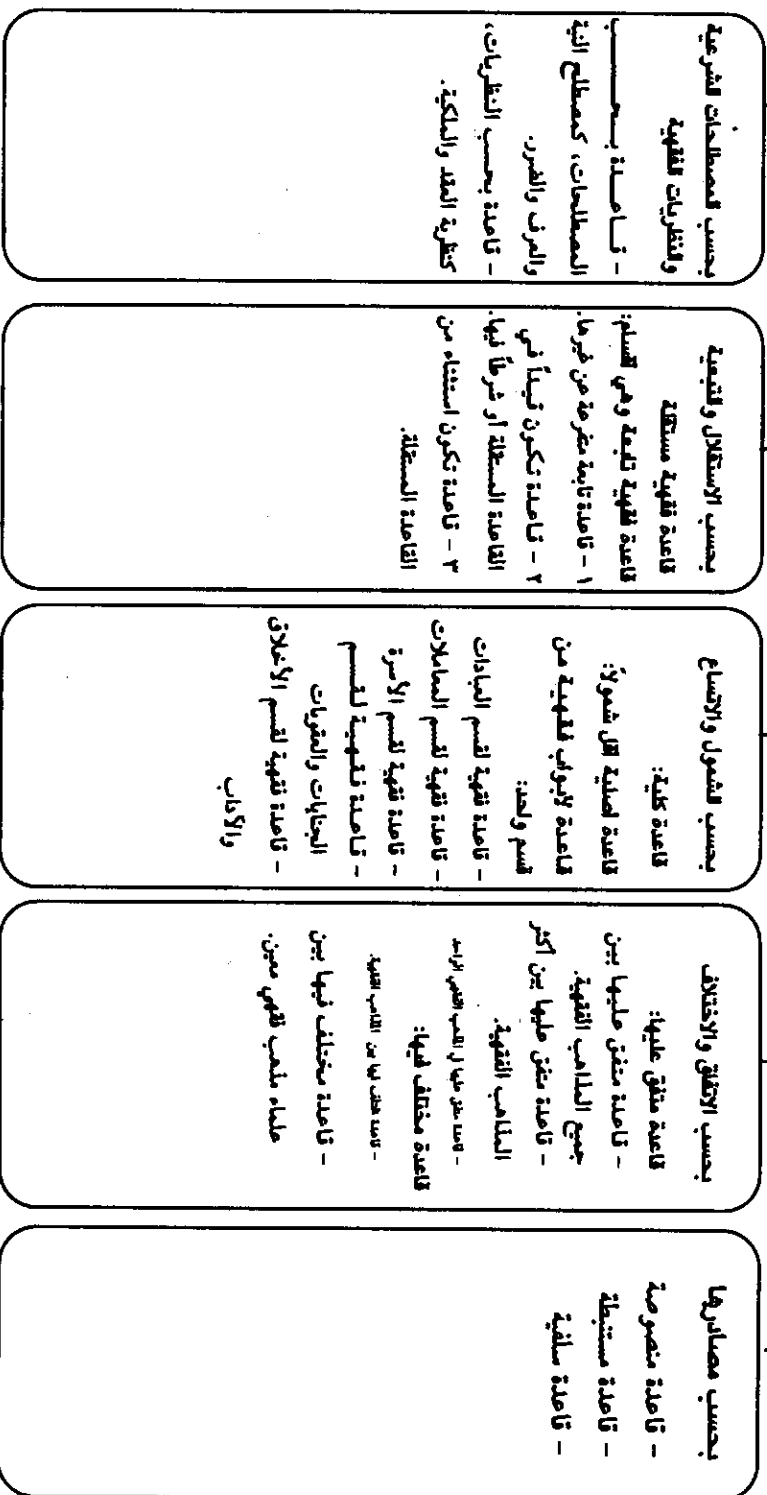 بحسب مصادرها
- قاعدة منصوصة
- قاعدة مستنبطة
- قاعدة سلفية
بحسب الاتفاق والاختلاف
قاعدة متفق عليها:
- قاعدة متفق عليها بين
جميع المذاهب الفقهية.
- قاعدة متفق عليها بين أكثر
المذاهب الفقهية.
- قاعدة متفق عليها في المذهب الفقهي الواحد
قاعدة مختلف فيها:
- قاعدة مختلف فيها بين المذاهب الفقهية.
- قاعدة مختلف فيها بين
علماء مذهب فقهي معين.
بحسب الشمول والاتساع
قاعدة كلية:
قاعدة أصلية أقل شمولاً:
قاعدة لأبواب فقهية من
قسم واحد:
- قاعدة فقهية لقسم العبادات
- قاعدة فقهية لقسم المعاملات
- قاعدة فقهية لقسم الأسرة
- قاعدة فقهية لقسم
الجنايات والعقوبات
- قاعدة فقهية لقسم الأخلاق
والآداب
بحسب الاستقلال والتبعية
قاعدة فقهية مستقلة
قاعدة فقهية تابعة وهي أقسام:
١ - قاعدة تابعة متفرعة عن غيرها.
٢ - قاعدة تكون قيداً في
القاعدة المستقلة أو شرطاً فيها.
٣ - قاعدة تكون استثناء من
القاعدة المستقلة.
بحسب المصطلحات الشرعية
والنظريات الفقهية
- قاعدة بحسب
المصطلحات، كمصطلح النية
والعرف والضرر.
- قاعدة بحسب النظريات،
كنظرية العقد والملكية.